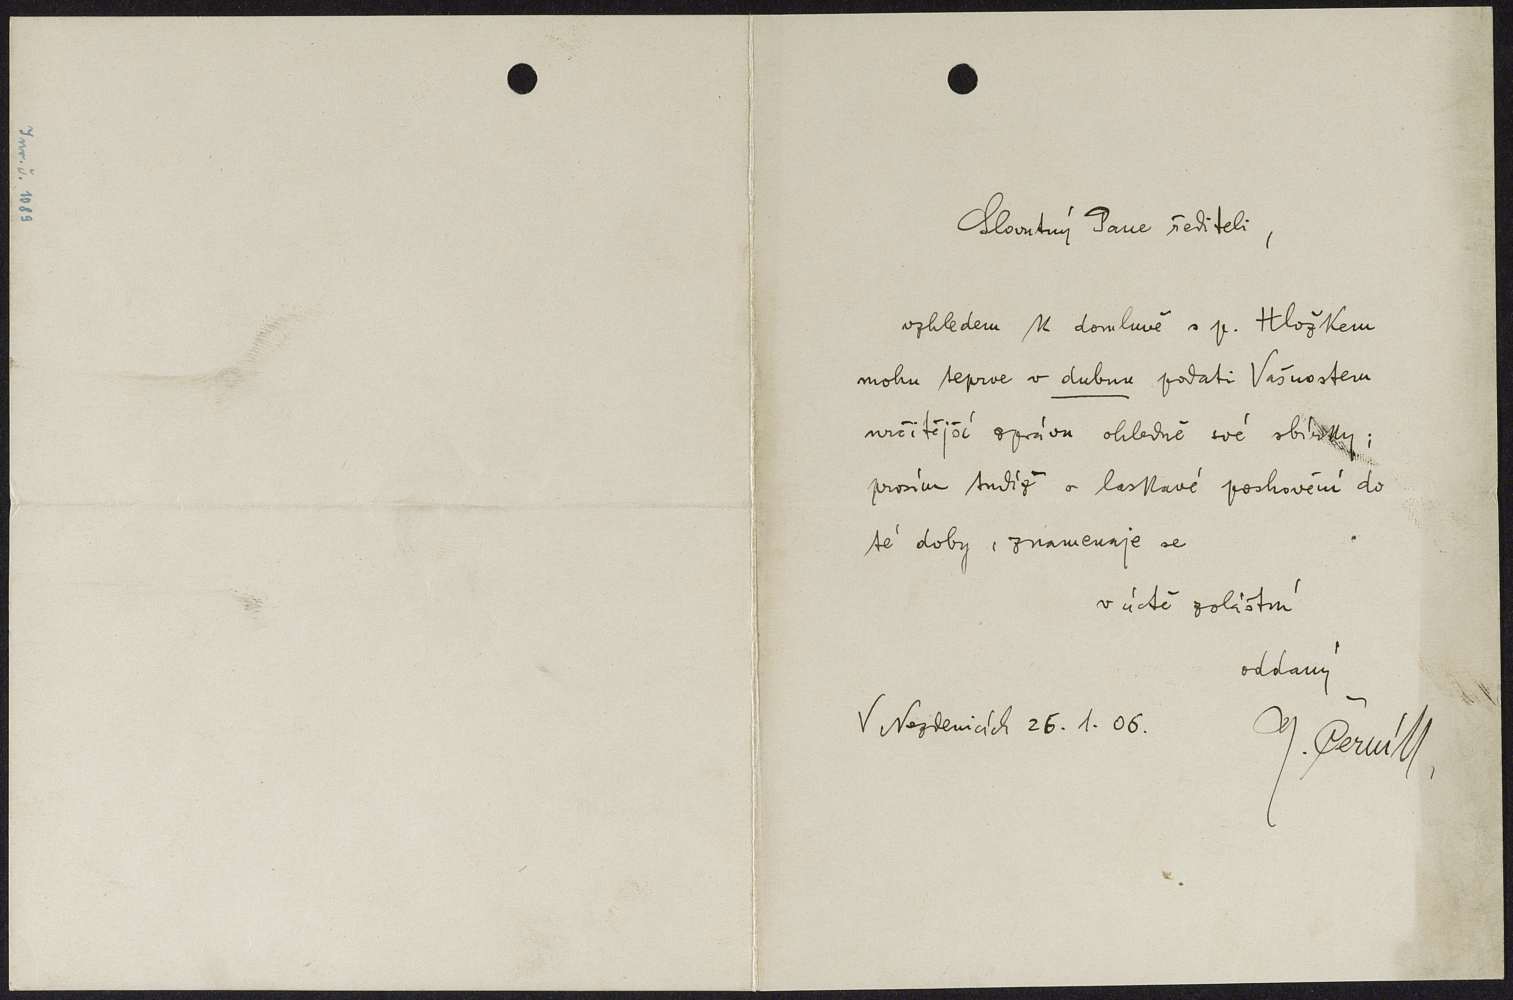 Inv. č. 1089
Slovutný Pane řediteli,
vzhledem k domluvě s p. Hložkem
mohu teprve v dubnu podati Vašnostem
určitější zprávu ohledně své sbírky;
prosím tudíž o laskavé poshovění do
té doby, znamenaje se
v úctě zvláštní
oddaný
V Nezdenicích 26. 1. 06.
J. Černík,